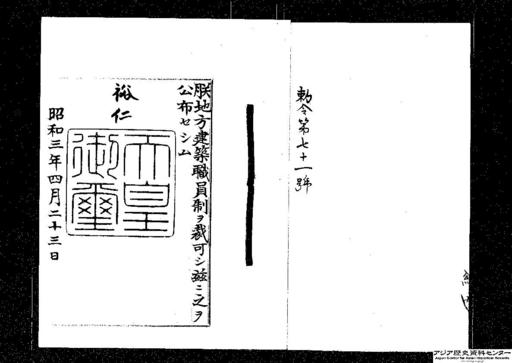 勅令第七十一號
朕地方建築職員制ヲ裁可シ茲ニ之ヲ
公布セシム
裕仁
天皇
御璽
昭和三年四月二十三日
アジア歴史資料センター
Japan Center for Asian Historical Records